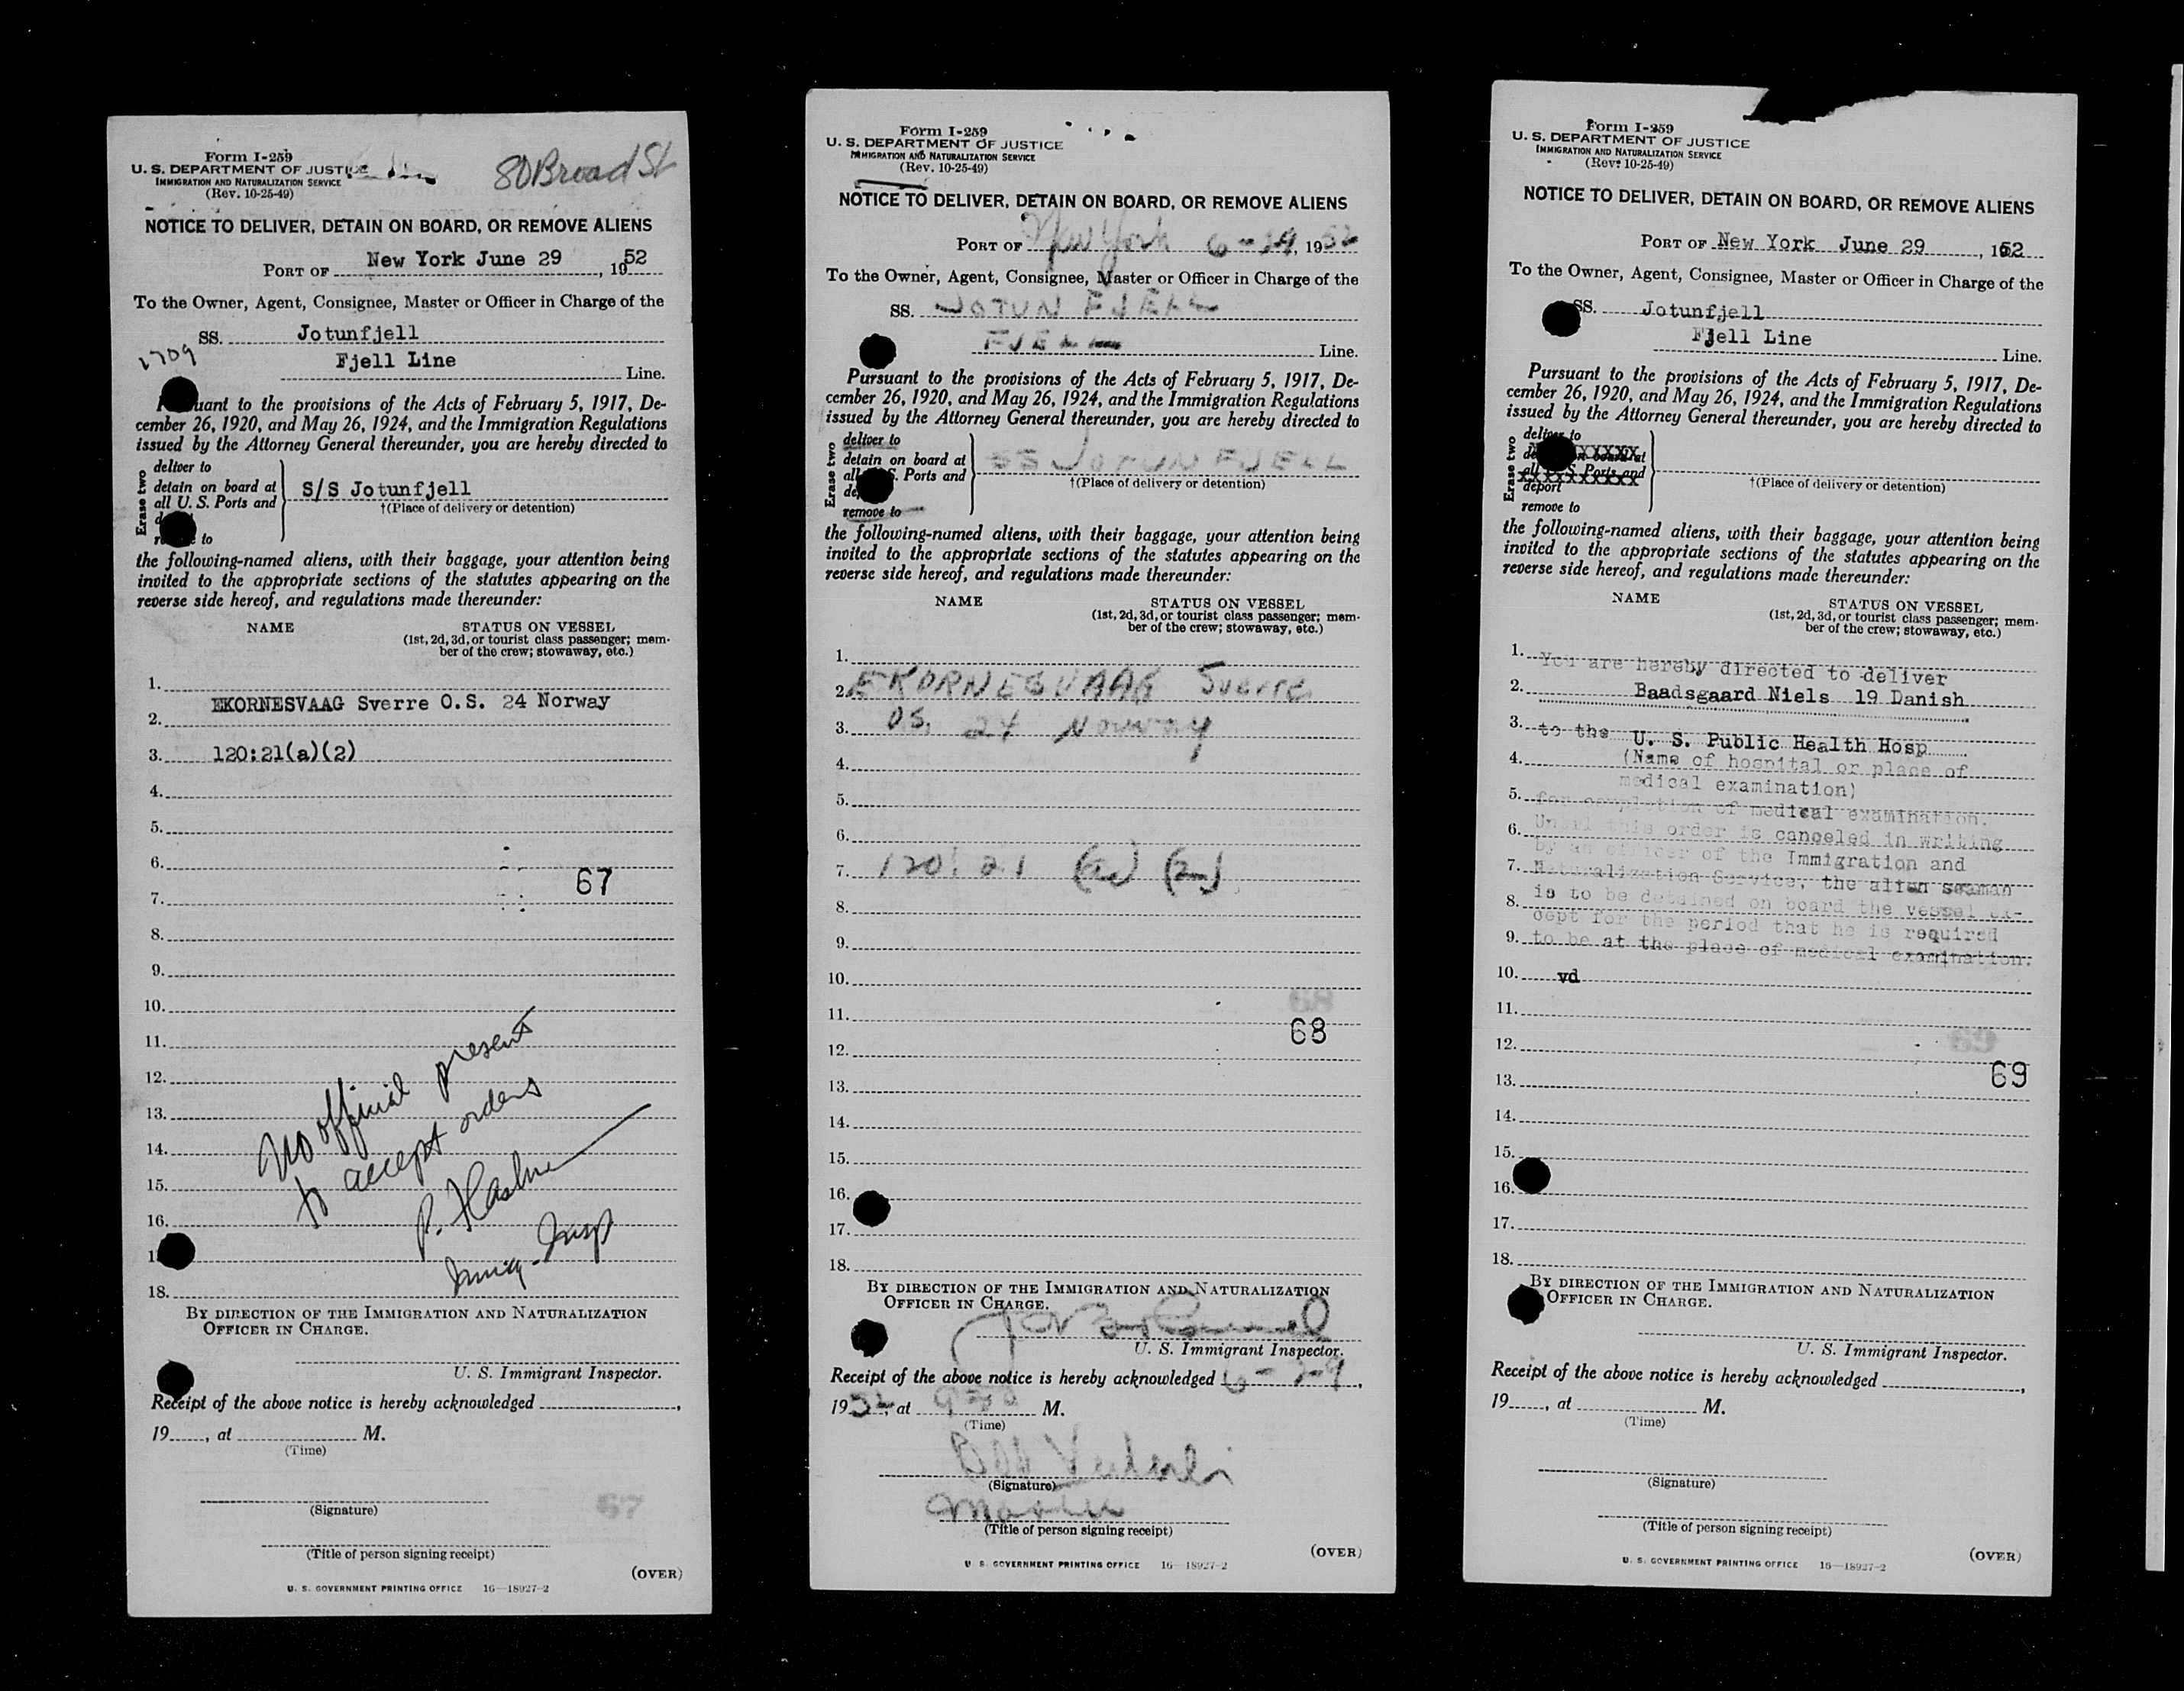 Form I-259
U. S. DEPARTMENT OF JUSTICE
IMMIGRATION AND NATURALIZATION SERVICE
(Rev. 10-25-49)
80 Broad St
NOTICE TO DELIVER, DETAIN ON BOARD, OR REMOVE ALIENS
PORT OF New York June 29, 1952
To the Owner, Agent, Consignee, Master or Officer in Charge of the
SS. Jotunfjell
1709
Fjell Line
Line.
uant to the provisions of the Acts of February 5, 1917, De-
cember 26, 1920, and May 26, 1924, and the Immigration Regulations
issued by the Attorney General thereunder, you are hereby directed to
Erase two
deliver to
detain on board at
all U. S. Ports and
S/S Jotunfjell
†(Place of delivery or detention)
to
the following-named aliens, with their baggage, your attention being
invited to the appropriate sections of the statutes appearing on the
reverse side hereof, and regulations made thereunder:
NAME STATUS ON VESSEL
(1st, 2d, 3d, or tourist class passenger; mem-
ber of the crew; stowaway, etc.)
1.
EKORNESVAAG Sverre O.S. 24 Norway
2.
3. 120:21(a)(2)
4.
5.
6.
67
7.
8.
9.
10.
11.
12.
13.
14.
15.
16.
18.
No official present
to accept orders
Immig. Insp
BY DIRECTION OF THE IMMIGRATION AND NATURALIZATION
OFFICER IN CHARGE.
U. S. Immigrant Inspector.
Receipt of the above notice is hereby acknowledged ,
19 , at M.
(Time)
67
(Signature)
(Title of person signing receipt)
(OVER)
U. S. GOVERNMENT PRINTING OFFICE 16—18927-2
Form I-259
U. S. DEPARTMENT OF JUSTICE
IMMIGRATION AND NATURALIZATION SERVICE
(Rev. 10-25-49)
NOTICE TO DELIVER, DETAIN ON BOARD, OR REMOVE ALIENS
PORT OF New York 6-29, 1952
To the Owner, Agent, Consignee, Master or Officer in Charge of the
SS. JOTUN FJELL
FJELL Line.
Pursuant to the provisions of the Acts of February 5, 1917, De-
cember 26, 1920, and May 26, 1924, and the Immigration Regulations
issued by the Attorney General thereunder, you are hereby directed to
Erase two
deliver to
detain on board at
all S. Ports and
remove to
SS JOTUN FJELL
†(Place of delivery or detention)
the following-named aliens, with their baggage, your attention being
invited to the appropriate sections of the statutes appearing on the
reverse side hereof, and regulations made thereunder:
NAME STATUS ON VESSEL
(1st, 2d, 3d, or tourist class passenger; mem-
ber of the crew; stowaway, etc.)
1.
2. EKORNESVAAG Sverre
3. OS. 24 Norway
4.
5.
6.
7. 120:21 (a) (2)
8.
9.
10.
68
11.
68
12.
13.
14.
15.
16.
17.
18.
BY DIRECTION OF THE IMMIGRATION AND NATURALIZATION
OFFICER IN CHARGE.
U. S. Immigrant Inspector.
Receipt of the above notice is hereby acknowledged 6-29,
1952, at M.
(Time)
(Signature)
(Title of person signing receipt)
(OVER)
U. S. GOVERNMENT PRINTING OFFICE 16—18927-2
Form I-259
U. S. DEPARTMENT OF JUSTICE
IMMIGRATION AND NATURALIZATION SERVICE
(Rev. 10-25-49)
NOTICE TO DELIVER, DETAIN ON BOARD, OR REMOVE ALIENS
PORT OF New York June 29, 1952
To the Owner, Agent, Consignee, Master or Officer in Charge of the
SS. Jotunfjell
Fjell Line
Line.
Pursuant to the provisions of the Acts of February 5, 1917, De-
cember 26, 1920, and May 26, 1924, and the Immigration Regulations
issued by the Attorney General thereunder, you are hereby directed to
Erase two
deliver to
on board at
all U. S. Ports and
deport
remove to
†(Place of delivery or detention)
the following-named aliens, with their baggage, your attention being
invited to the appropriate sections of the statutes appearing on the
reverse side hereof, and regulations made thereunder:
NAME STATUS ON VESSEL
(1st, 2d, 3d, or tourist class passenger; mem-
ber of the crew; stowaway, etc.)
1. You are hereby directed to deliver
2. Baadsgaard Niels 19 Danish
3. to the U. S. Public Health Hosp
4. (Name of hospital or place of
medical examination)
5. for completion of medical examination.
6. Until this order is canceled in writing
by an officer of the Immigration and
7. Naturalization Service, the alien seaman
8. is to be detained on board the vessel ex-
cept for the period that he is required
9. to be at the place of medical examination.
10. vd
11.
69
12.
69
13.
14.
15.
16.
17.
18.
BY DIRECTION OF THE IMMIGRATION AND NATURALIZATION
OFFICER IN CHARGE.
U. S. Immigrant Inspector.
Receipt of the above notice is hereby acknowledged ,
19 , at M.
(Time)
(Signature)
(Title of person signing receipt)
(OVER)
U. S. GOVERNMENT PRINTING OFFICE 16—18927-2